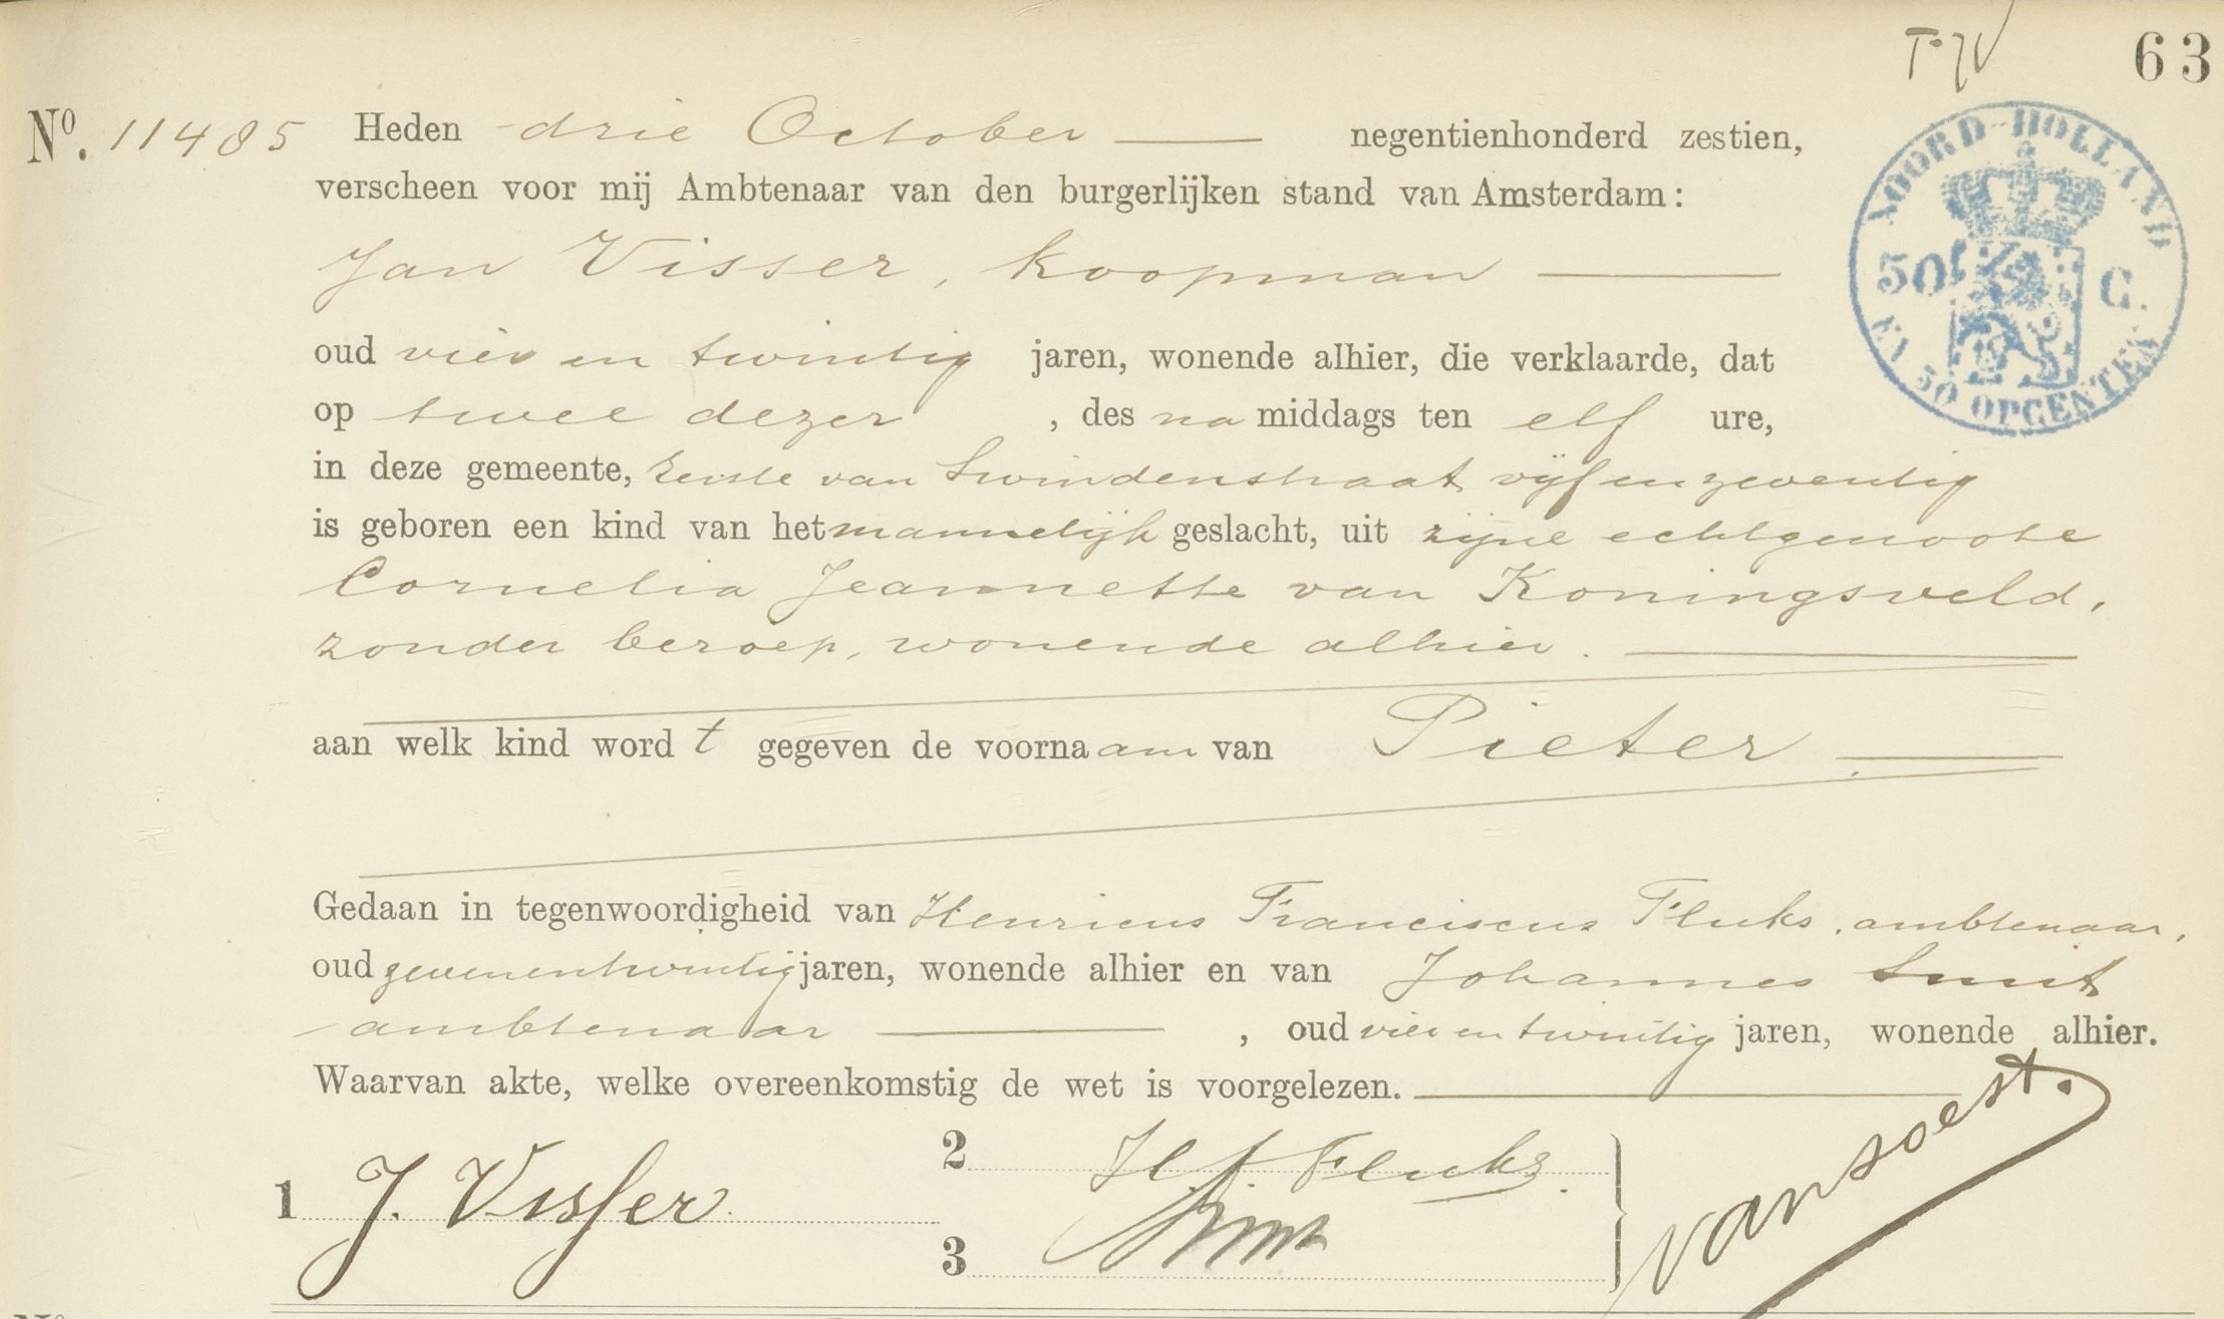 T. W 63
No. 11485 Heden drie October negentienhonderd zestien,
verscheen voor mij Ambtenaar van den burgerlijken stand van Amsterdam:
Jan Visser, koopman
oud vier en twintig jaren, wonende alhier, die verklaarde, dat
op twee dezer, des na middags ten elf ure,
in deze gemeente, Eerste van Swindenstraat vijf en zeventig
is geboren een kind van het mannelijk geslacht, uit zijne echtgenoote
Cornelia Jeannette van Koningsveld,
zonder beroep, wonende alhier.
aan welk kind word t gegeven de voorna am van Pieter.
Gedaan in tegenwoordigheid van Henricus Franciscus Fluks, ambtenaar,
oud zevenentwintig jaren, wonende alhier en van Johannes Smit
ambtenaar, oud vier en twintig jaren, wonende alhier.
Waarvan akte, welke overeenkomstig de wet is voorgelezen.
1 J. Visser
2 H. F. Fluks.
3 Smit
van Soest.
NOORD-HOLLAND
50 C.
EN 50 OPCENTEN
No.